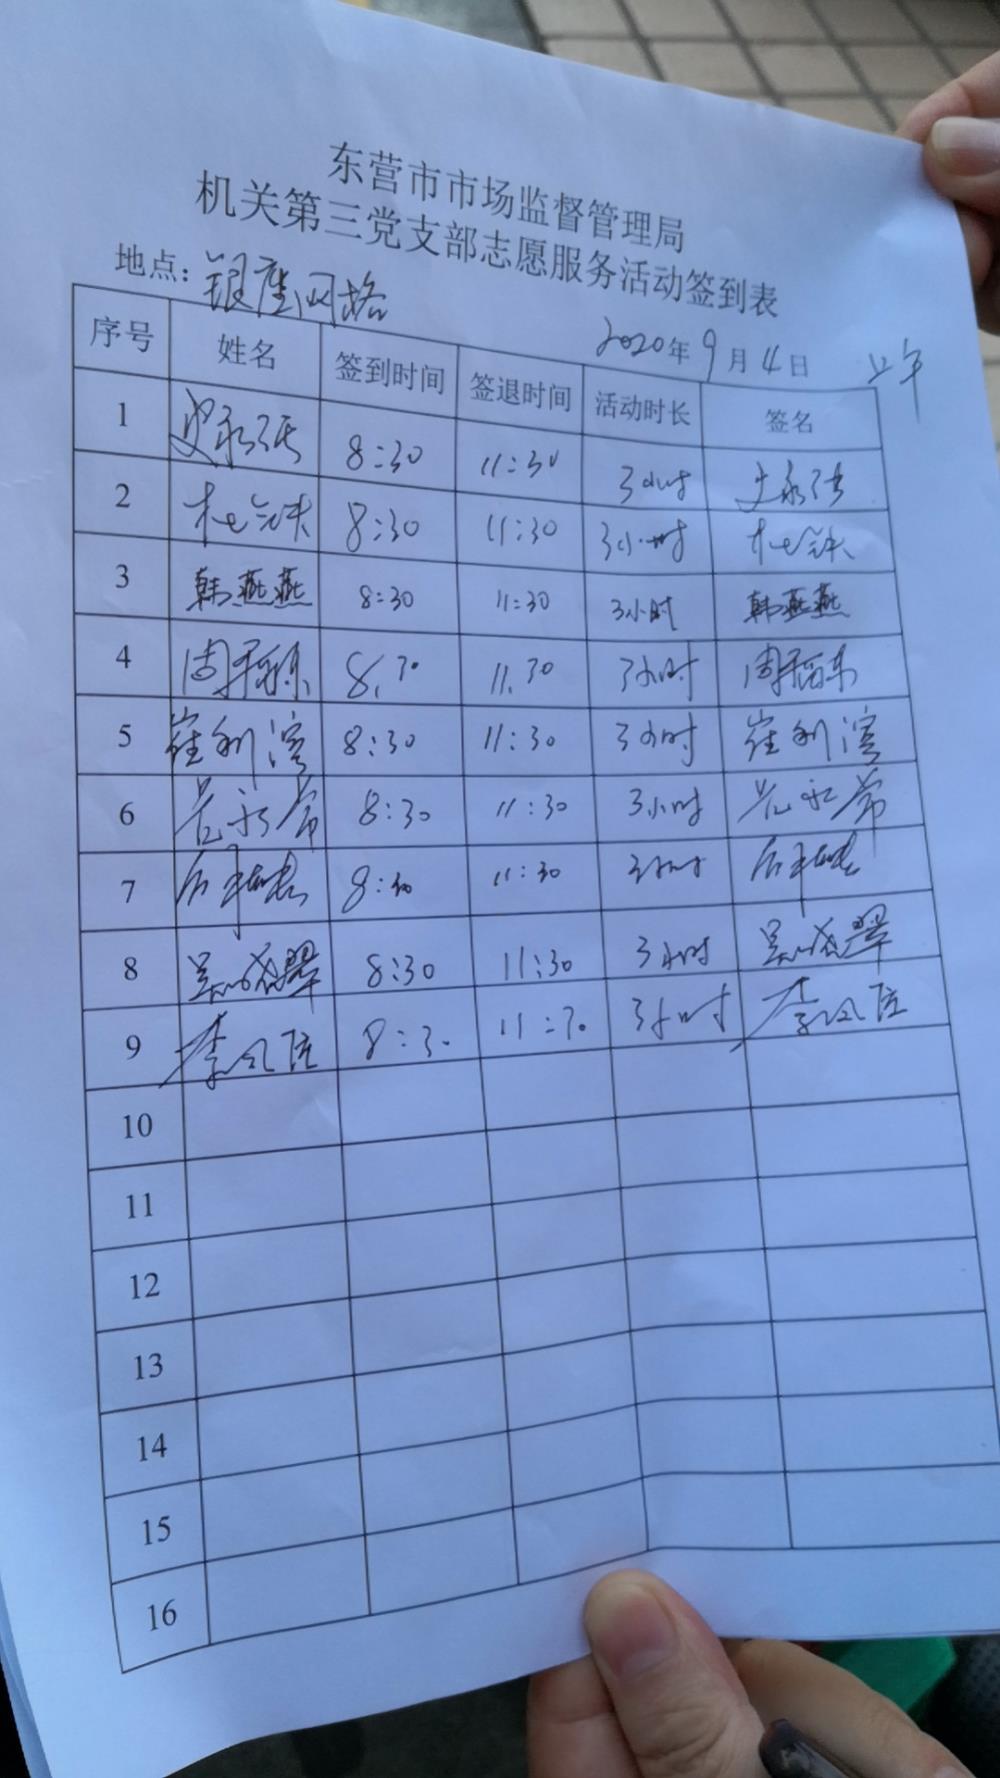 东营市市场监督管理局
机关第三党支部志愿服务活动签到表
地点：银座网格
2020年9月4日 上午
序号 姓名 签到时间 签退时间 活动时长 签名
1 8:30 11:30 3小时
2 8:30 11:30 3小时
3 韩燕燕 8:30 11:30 3小时 韩燕燕
4 8.30 11.30 3小时
5 崔利滨 8:30 11:30 3小时 崔利滨
6 8:30 11:30 3小时
7 8:30 11:30 3小时
8 8:30 11:30 3小时
9 8:30 11:30 3小时
10
11
12
13
14
15
16